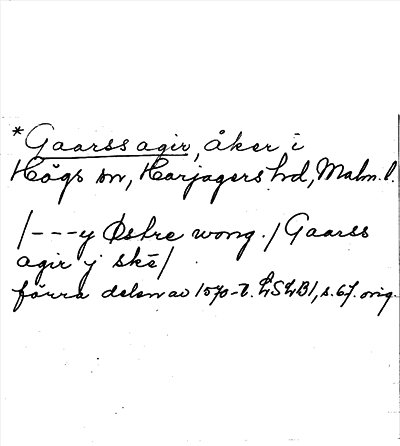 *Gaarss agir, åker i
Högs sn, Harjagers hd, Malm. l.
/---y Østre wong. / Gaarss
agir j skē/
förra delen av 1570-t. LSLB1, s. 67. orig.